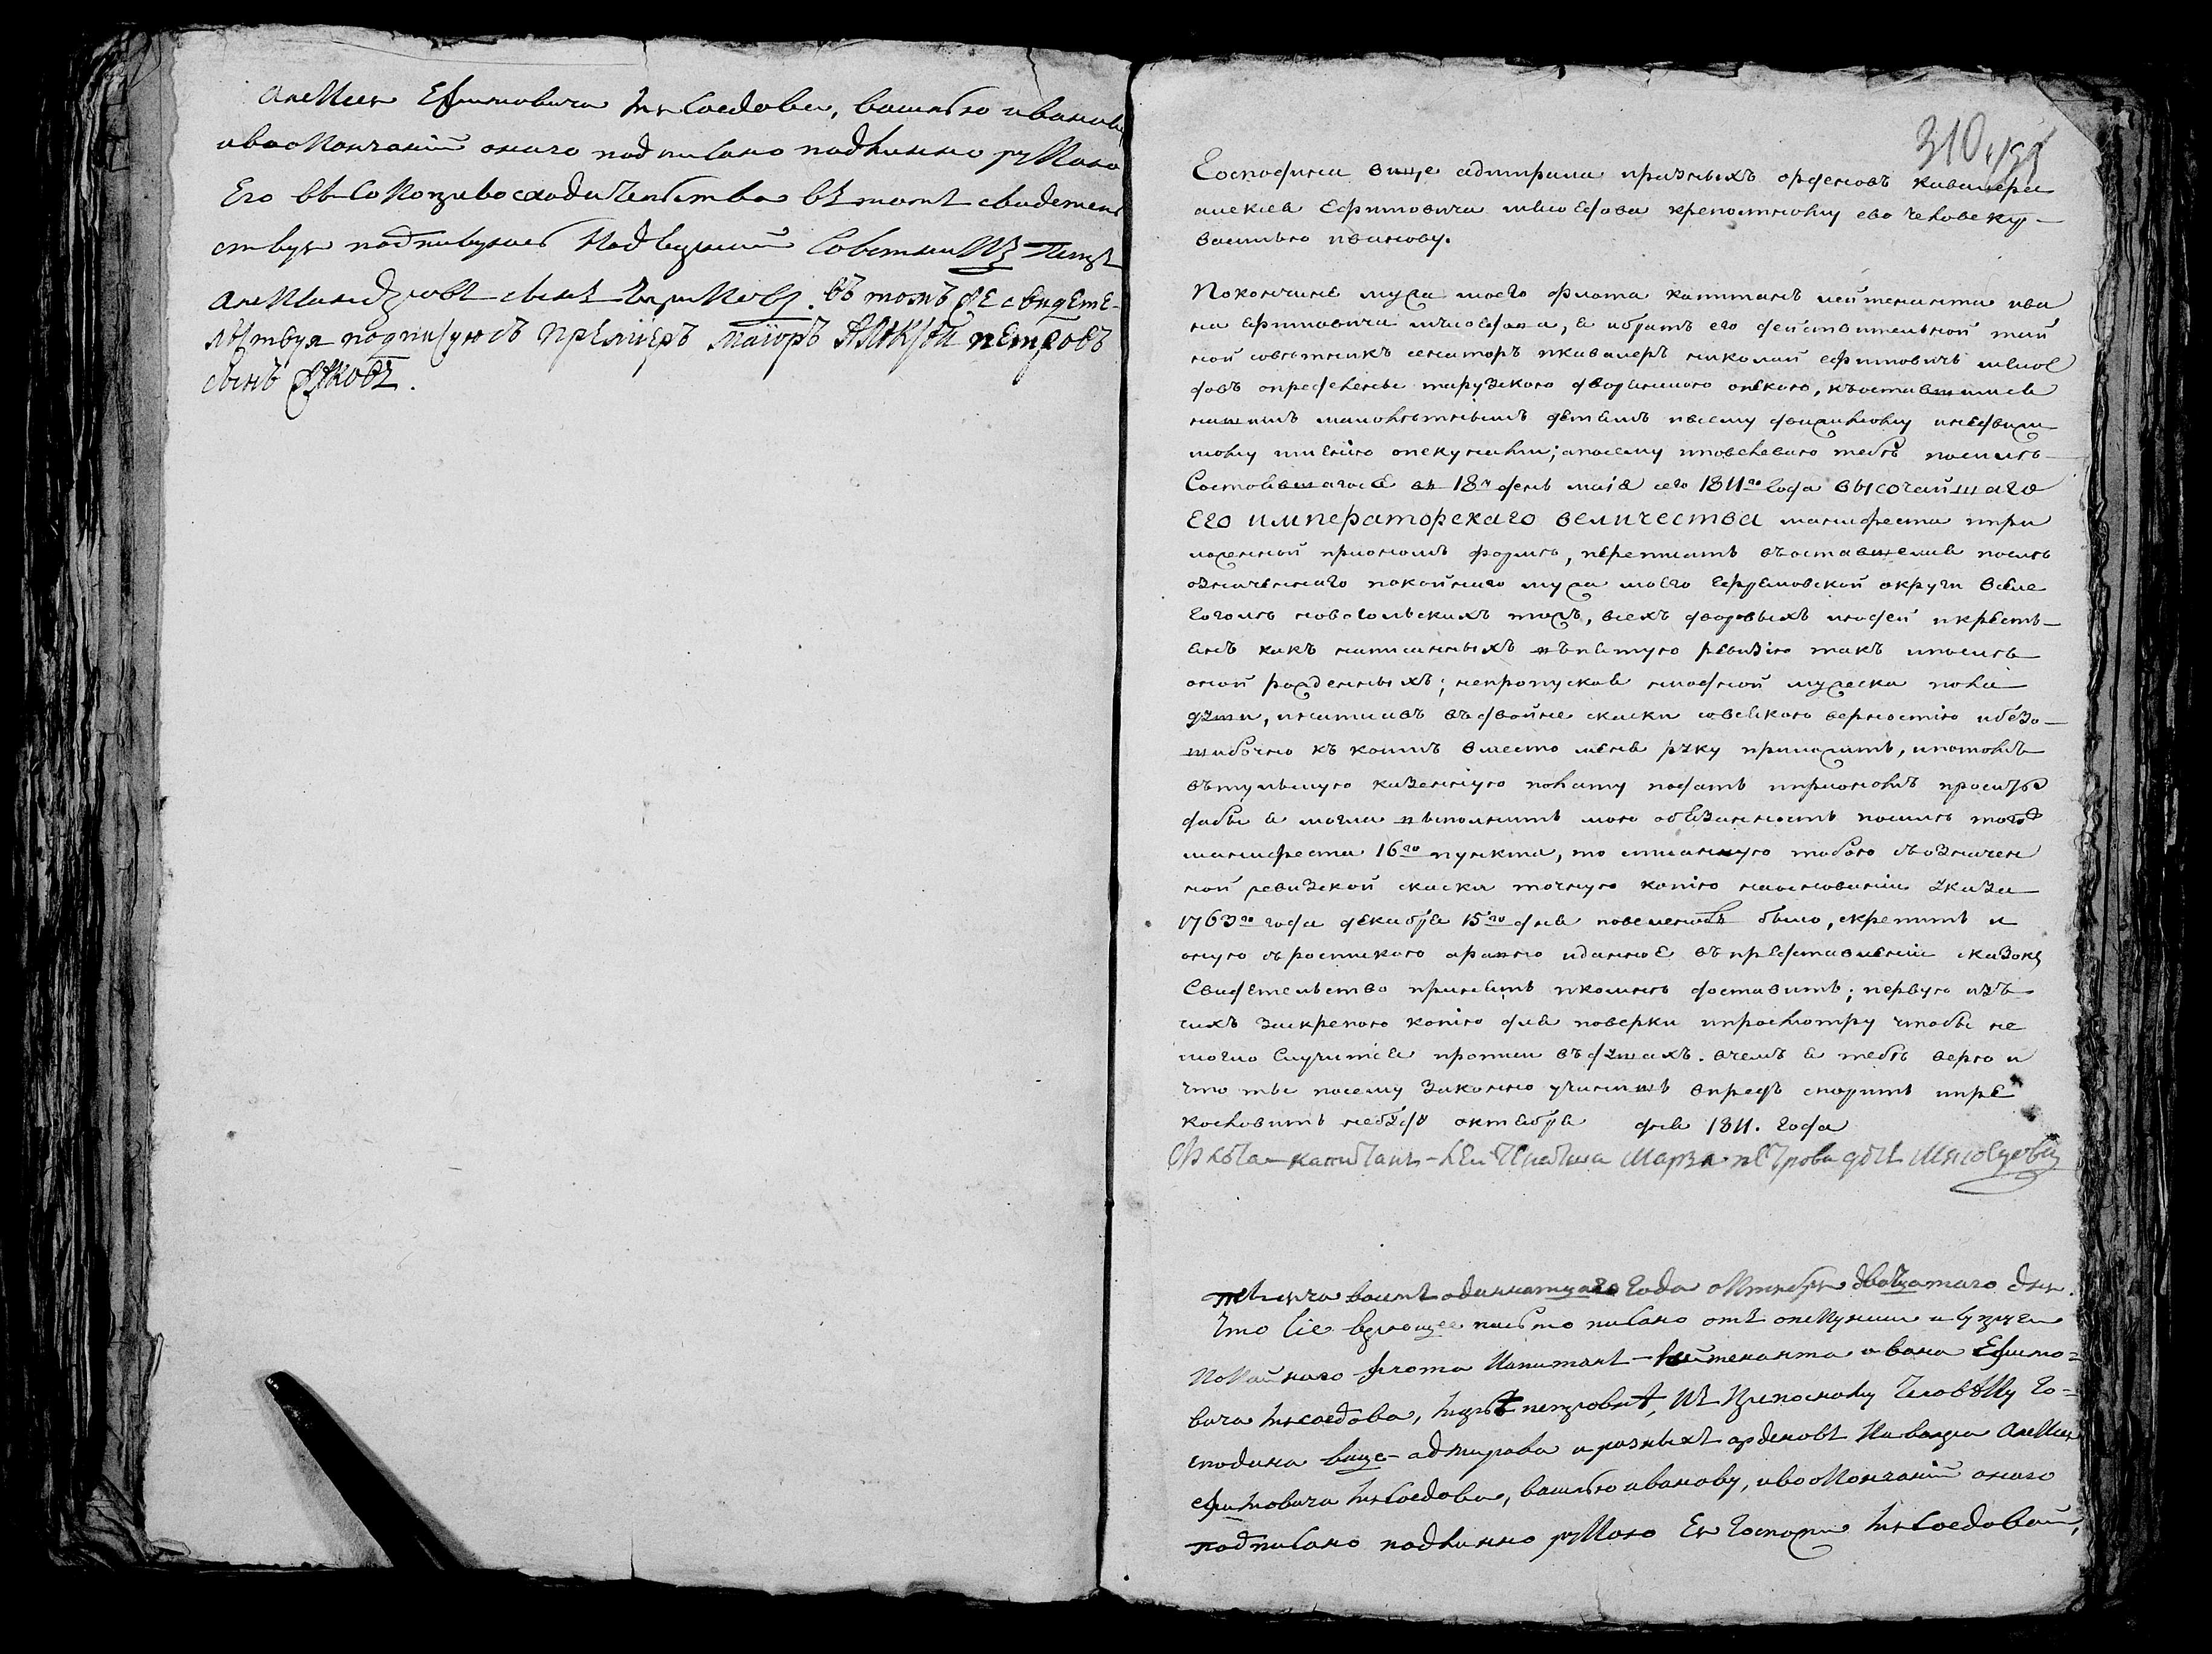 Алексея Ефимовича Мясоедова, василью иванову
ивоокончаний онаго подписано подлинно рукою
Его высокопревосходительства въ томъ свидетель
ствуя подписуюсь Надворный Советникъ Петръ
Александровъ сынъ Чириковъ. Въ томъ же свидете-
льствуя подписуюсь премиеръ маиоръ Алексѣй петровъ
сынъ
310
Господина вице адмирала иразныхъ орденовъ кавалера
алексея ефимовича мясоедова крепостному ево человеку
василью иванову.
Покончине мужа моего флота капитанъ лейтенанта ива
на ефимовича мясоедова, я ибратъ его действительной тай
ной советникъ сенаторъ икавалеръ николай ефимовичъ мясое
довъ определены тарузскою дворянскою опекою, къоставшимся
нашимъ малолетнымъ детямъ ивсему движимому инедвижи
мому имению опекунами; апосему иповелеваю тебе посиле
Состоявшагося въ 18й день маія сего 1811го года высочайшаго
Его императорскаго величества манифеста ипри
ложенной приономъ форме, переписать въоставшемся после
означеннаго покойнаго мужа моего ефремовской округи всель
новогольскихъ тожъ, всехъ дворовыхъ людей икресть
янъ какъ написанныхъ въпятую ревизію такъ ипосле
оной рожденныхъ; непропуская ниодной мужеска пола
души, инаписавъ въдвойне скаски совсякою верностію ибезо
шибочно къ коимъ вместо меня руку приложить, ипотомъ
въ тульскую казенную полату подать иприономъ просить
дабы я могла исполнить мою обязанность посиле того
манифеста 16го пункта, то списанную тобою съозначен
ной ревизской скаски точную копію наосновании указа
1763го года декабря 15го дня повелено было, скрепить и
оную съроспискою иданное въпредставлении сказокъ
Свидетельство принять икомне доставить; первую изъ
нихъ заскрепою копію для поверки ипросмотру чтобы не
могло Случится прописи въдушахъ. вчемъ я тебе верю и
что ты посему законно учинишь впредь спорить ипре
кословить небуду октября дня 1811. года
Флота-капитанъ-лейтенантша Марѳа петрова дочь Мясоедова
тысяча восемь одиннатцатаго года октября дватцатаго дня.
Что сіе верющее письмо писано отъ опекунши и супруги
покойнаго флота капитанъ-лейтенанта ивана Ефимо=
вича мясоедова, петровны, къ крепосному человѣку го=
сподина вице-адмирала и разныхъ орденовъ кавалера Алексея
ефимовича мясоедова, василью иванову, ивоокончаний онаго
подписано подлинно рукою Ея Госпожи Мясоедовой,